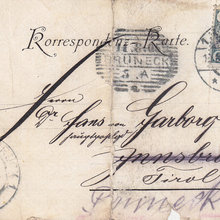 Korrespondenz-Karte.
BRUNECK
5. A
Herrn
Dr Hans von Garborg
Innsbr
Tirol
Bruneck